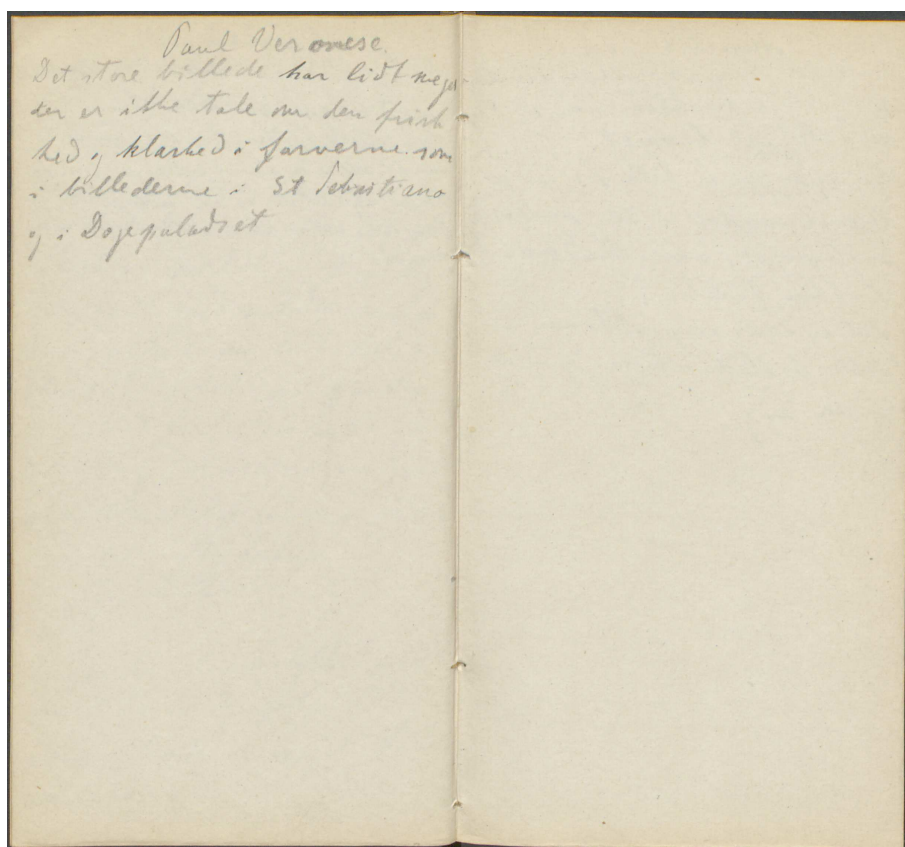 Paul Veronese.
Det store billede har lidt meget
der er ikke tale om den frisk
hed og klarhed i farverne som
i billederne i St Sebastiano
og i Dogepaladset